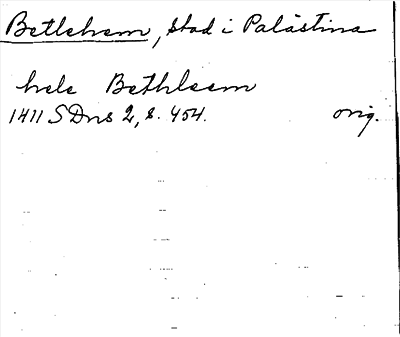 Betlehem, stad i Palästina
hele Bethleem
1411 SDns 2, s. 454. orig.